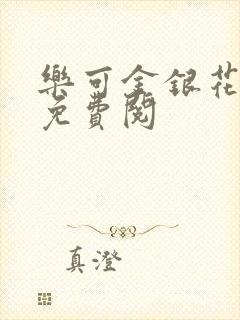 樂可金銀花
免費閱
真澄